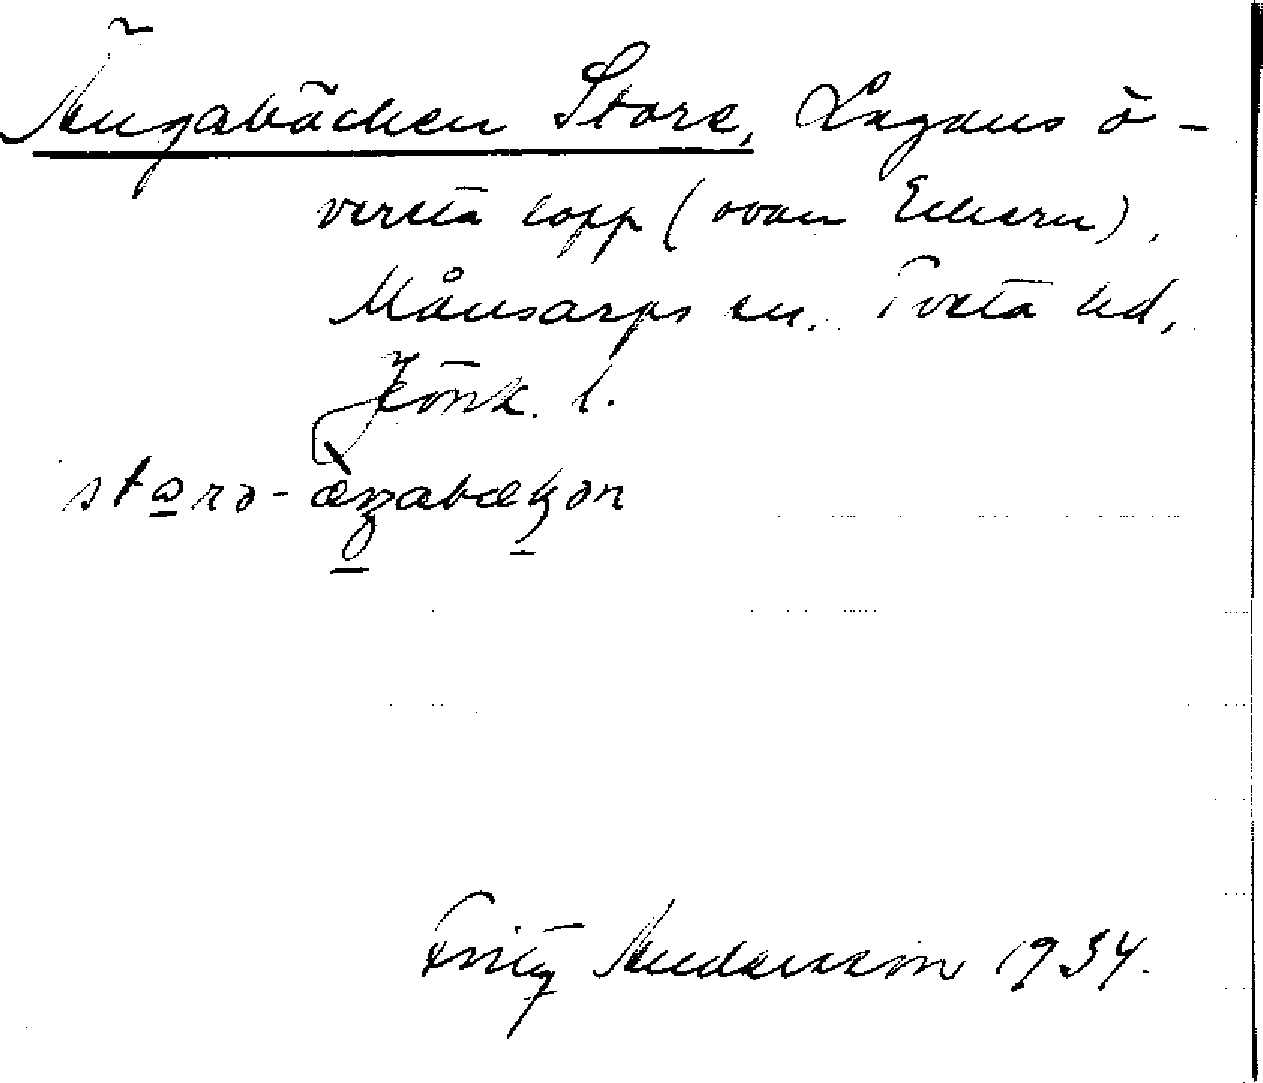 Ängabäcken Store, Lagans ö-
versta lopp (ovan Eckern),
Månsarps sn. Tveta hd,
Jönk. l.
storə-ängabäkən
Fritz Andersson 1934.